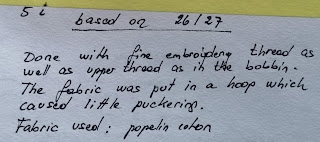 5 i
based on 26/27
Done with fine embroidery thread as
well as upper thread as in the bobbin.
The fabric was put in a hoop which
caused little puckering.
Fabric used: popelin coton